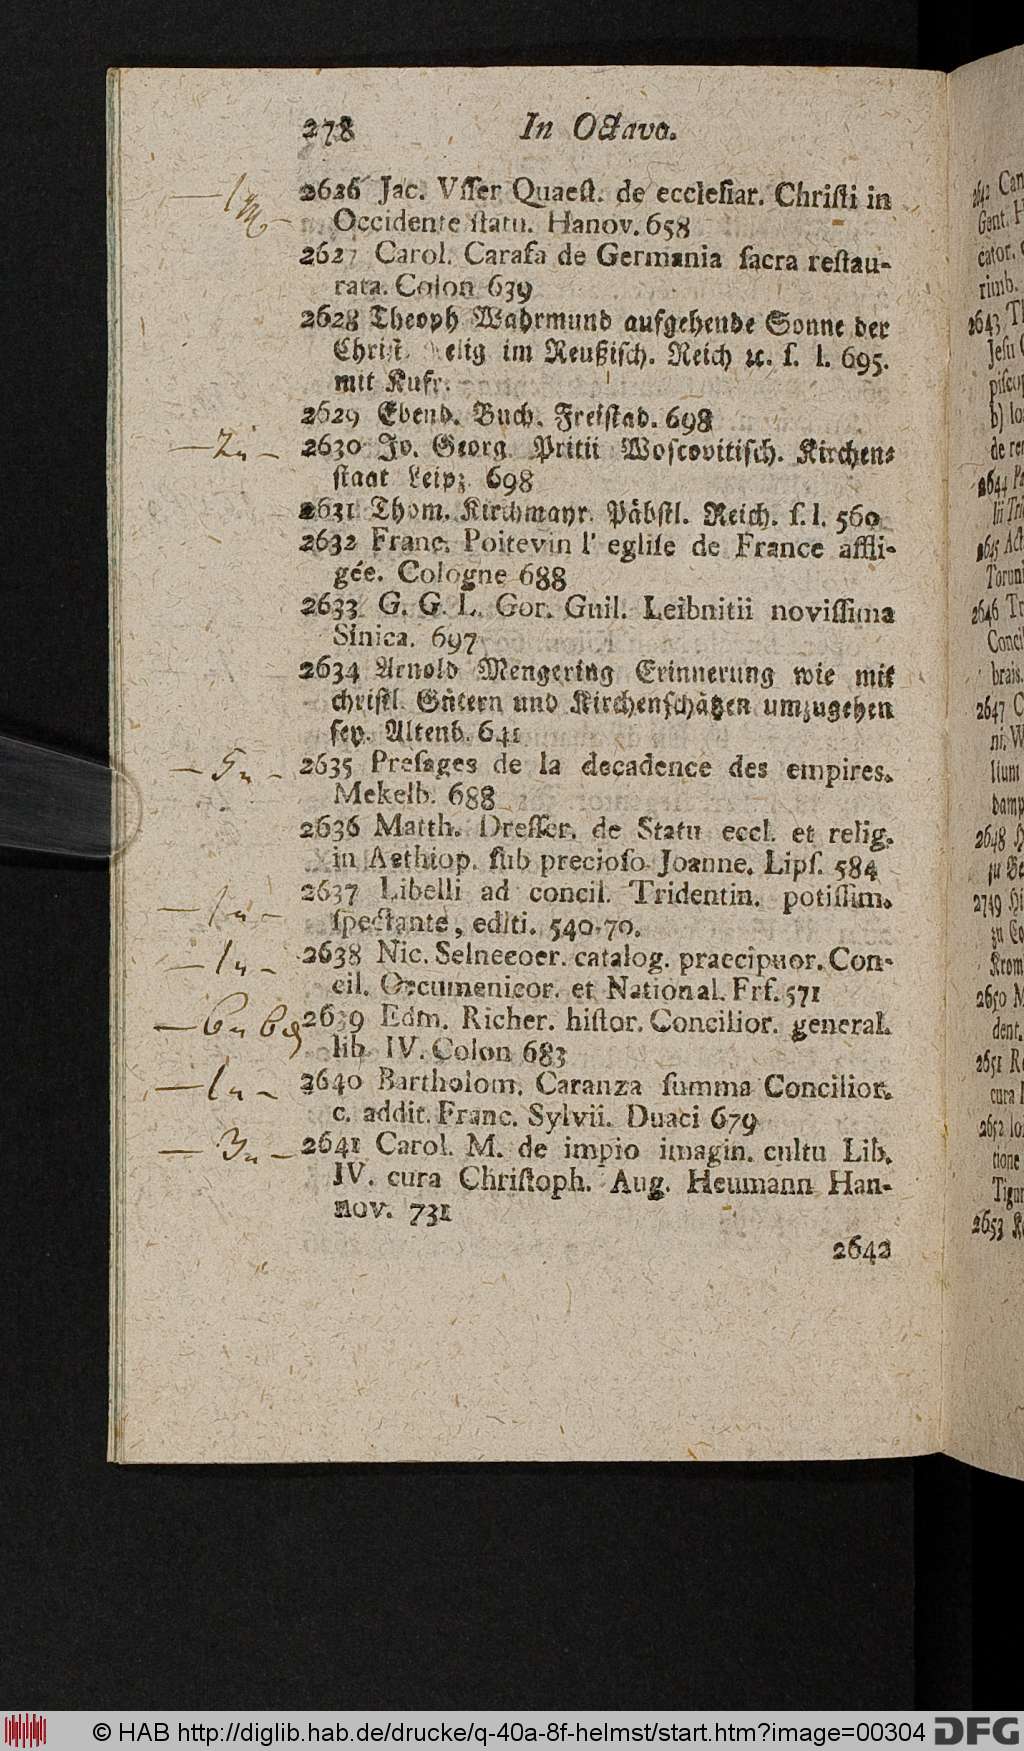 278 In Octavo.
2626 Jac. Vſſer Quaeſt. de eccleſiar. Chriſti in
Occidente ſtatu. Hanov. 658
2627 Carol. Carafa de Germania ſacra reſtau-
rata. Colon 639
2628 Theoph Wahrmund aufgehende Sonne der
Chriſt. Relig im Reußiſch. Reich ꝛc. ſ. l. 695.
mit Kufr.
2629 Ebend. Buch. Freiſtad. 698
2630 Jo. Georg. Pritii Moscovitiſch. Kirchen-
ſtaat Leipz 698
2631 Thom. Kirchmayr. Päbſtl. Reich. ſ. l. 560
2632 Franc. Poitevin l' egliſe de France affli-
gée. Cologne 688
2633 G. G. L. Gor. Guil. Leibnitii noviſſima
Sinica. 697
2634 Arnold Mengering Erinnerung wie mit
chriſtl. Gütern und Kirchenſchätzen umzugehen
ſey. Altenb. 641
2635 Preſages de la decadence des empires.
Mekelb. 688
2636 Matth. Dreſſer. de Statu eccl. et relig.
in Aethiop. ſub precioſo Joanne. Lipſ. 584
2637 Libelli ad concil. Tridentin. potiſſim.
ſpectante, editi. 540-70.
2638 Nic. Selneccer. catalog. praecipuor. Con-
cil. Oecumenicor. et National. Frf. 571
2639 Edm. Richer. hiſtor. Concilior. general.
lib. IV. Colon 683
2640 Bartholom. Caranza ſumma Concilior.
c. addit. Franc. Sylvii. Duaci 679
2641 Carol. M. de impio imagin. cultu Lib.
IV. cura Chriſtoph. Aug. Heumann Han-
nov. 731
2642
© HAB http://diglib.hab.de/drucke/q-40a-8f-helmst/start.htm?image=00304 DFG